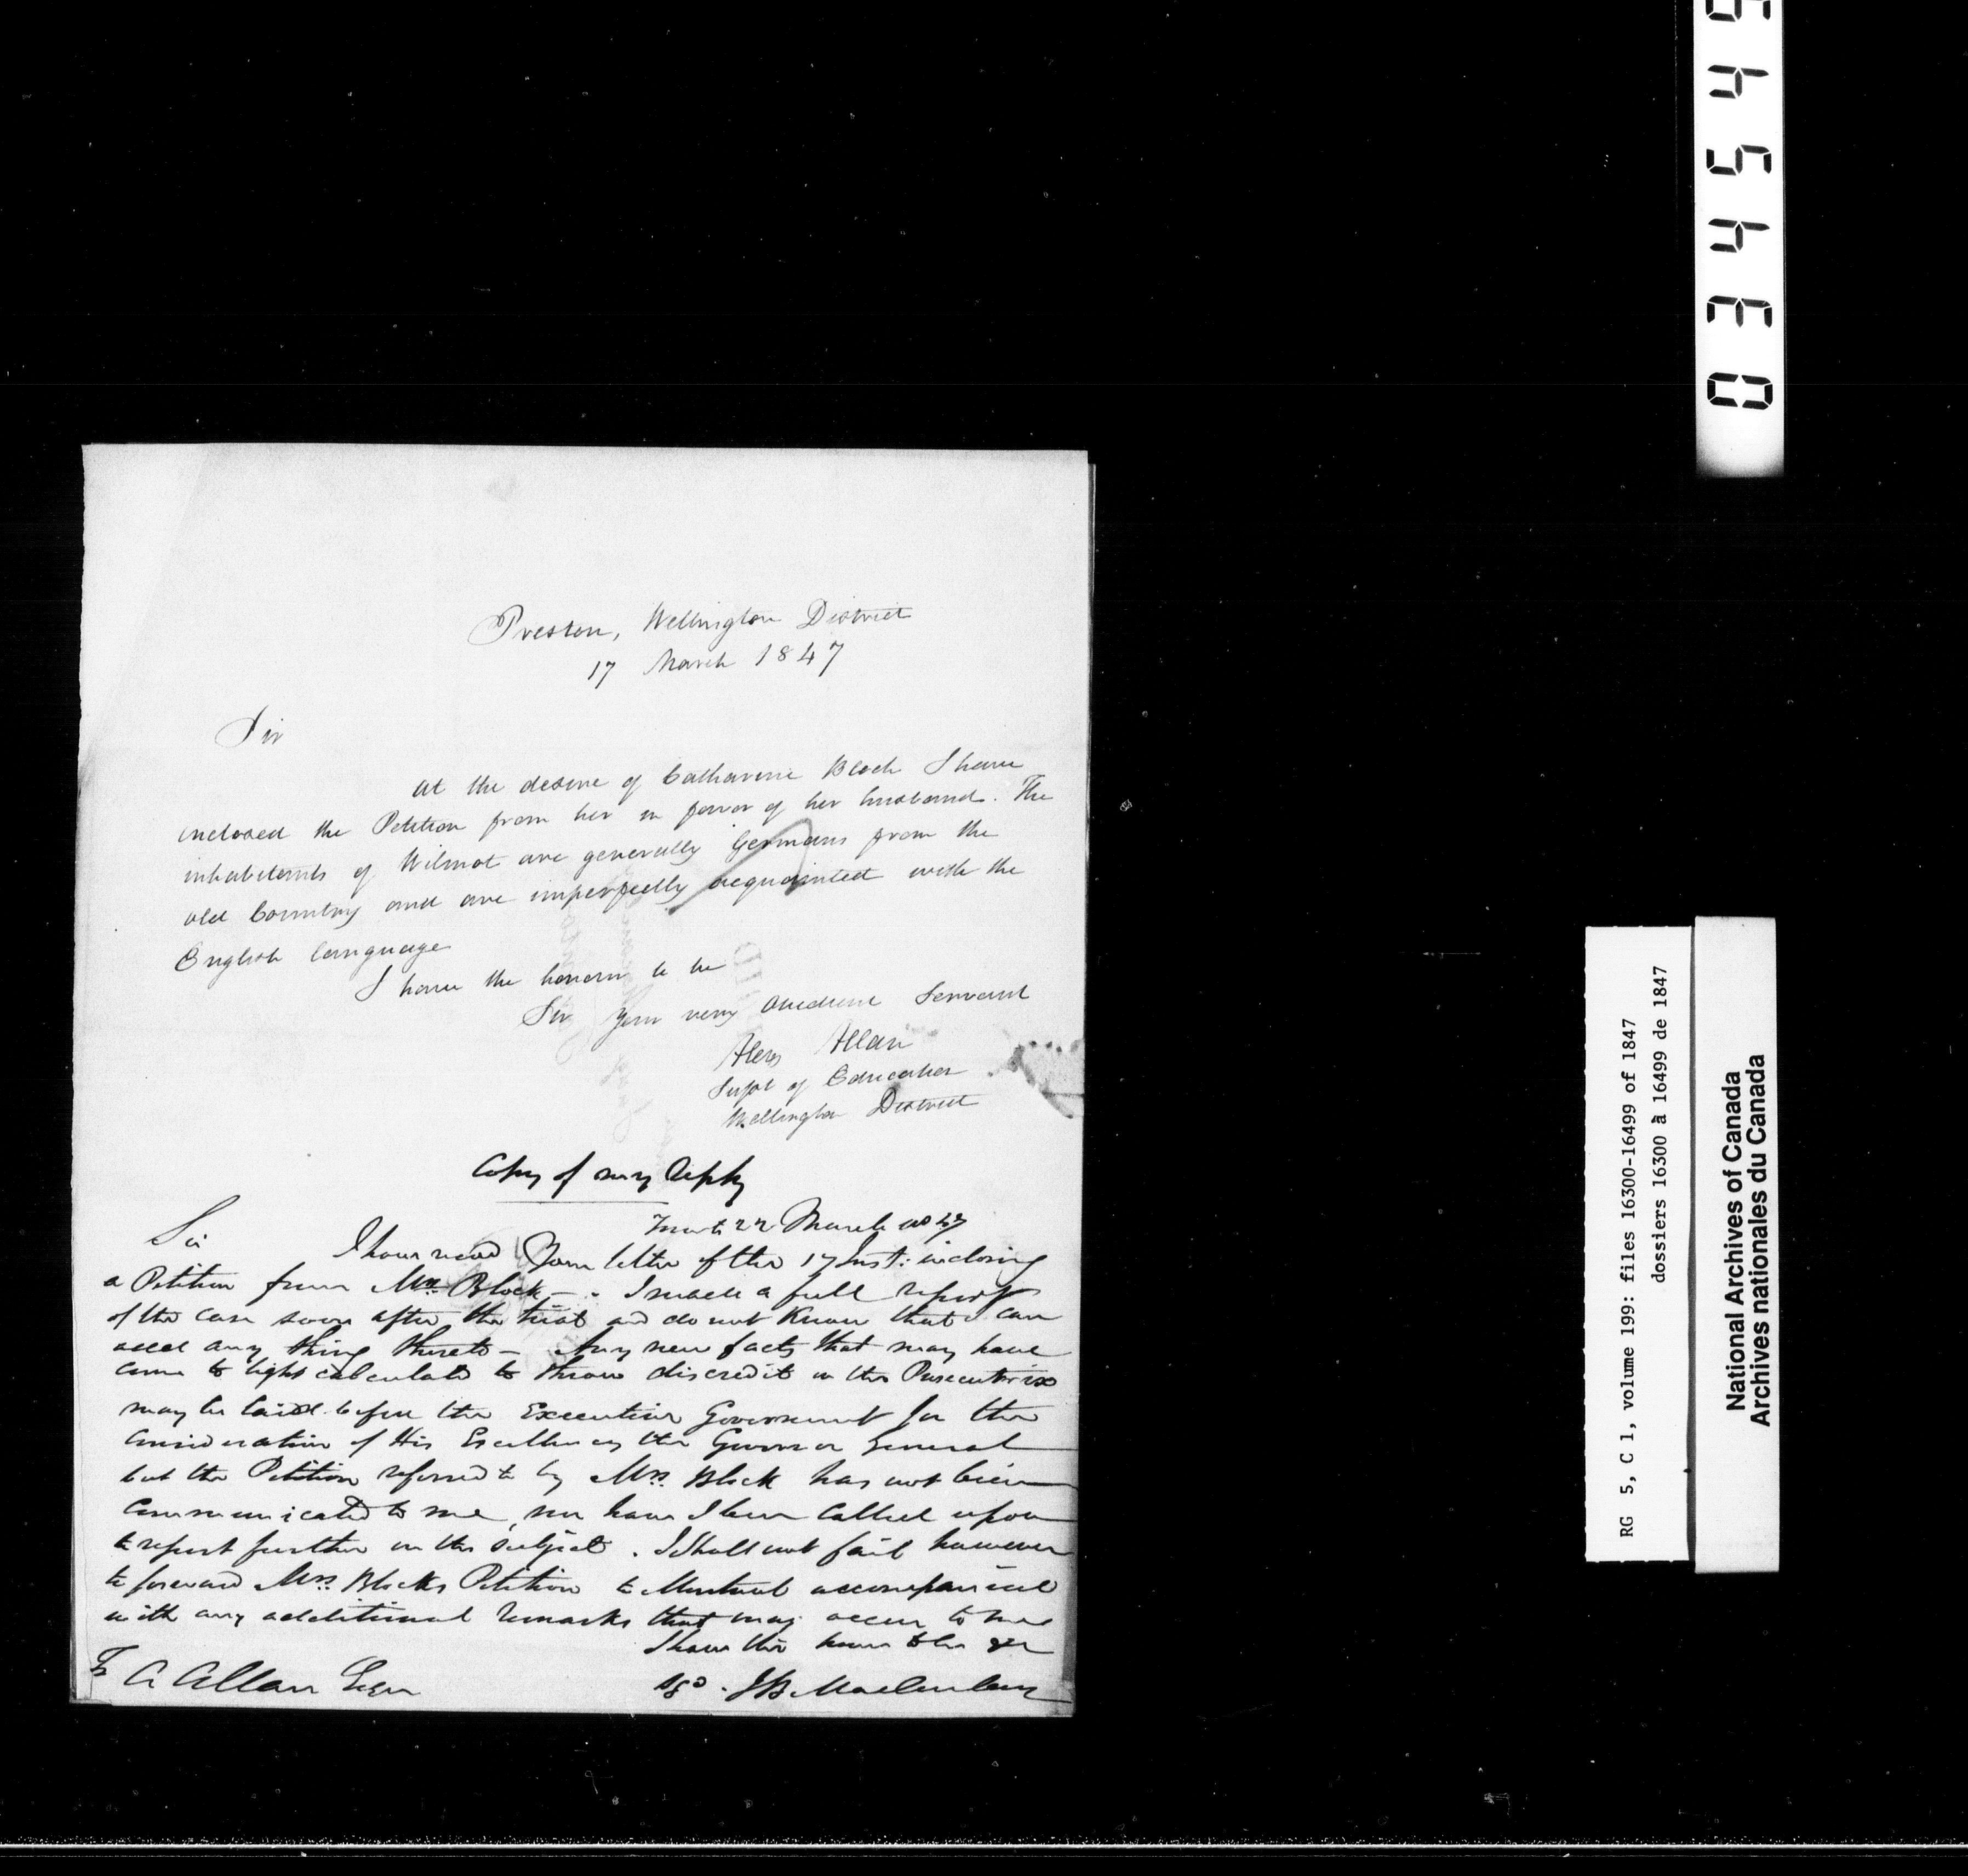 Preston, Wellington District
17 March 1847
Sir
At the desire of Catharine Block I have
inclosed the Petition from her in favor of her husband. The
inhabitants of Wilmot are generally Germans from the
old Country and are imperfectly acquainted with the
English language
I have the honor to be
Sir your very obedient Servant
Alexr Allan
Supt of Education
Wellington District
Copy of my Reply
22 March 1847
Sir I have recd Your letter of the 17 Inst: inclosing
a Petition from Mrs. Block - . I made a full report
of the case soon after the trial and do not know that I can
add any thing thereto - Any new facts that may have
come to light calculated to throw discredit on the Prosecutrix
may be laid before the Executive Government for the
consideration of His Excellency the Governor General
but the Petition referred to by Mrs. Block has not been
communicated to me, nor have I been called upon
to report further on the subject. I shall not fail however
to forward Mrs. Blocks Petition to Montreal accompanied
with any additional remarks that may occur to me
I have the honor to be &c
To A Allan Esqr
sgd. J B Macaulay
034545
RG 5, C 1, volume 199: files 16300-16499 of 1847
dossiers 16300 à 16499 de 1847
National Archives of Canada
Archives nationales du Canada